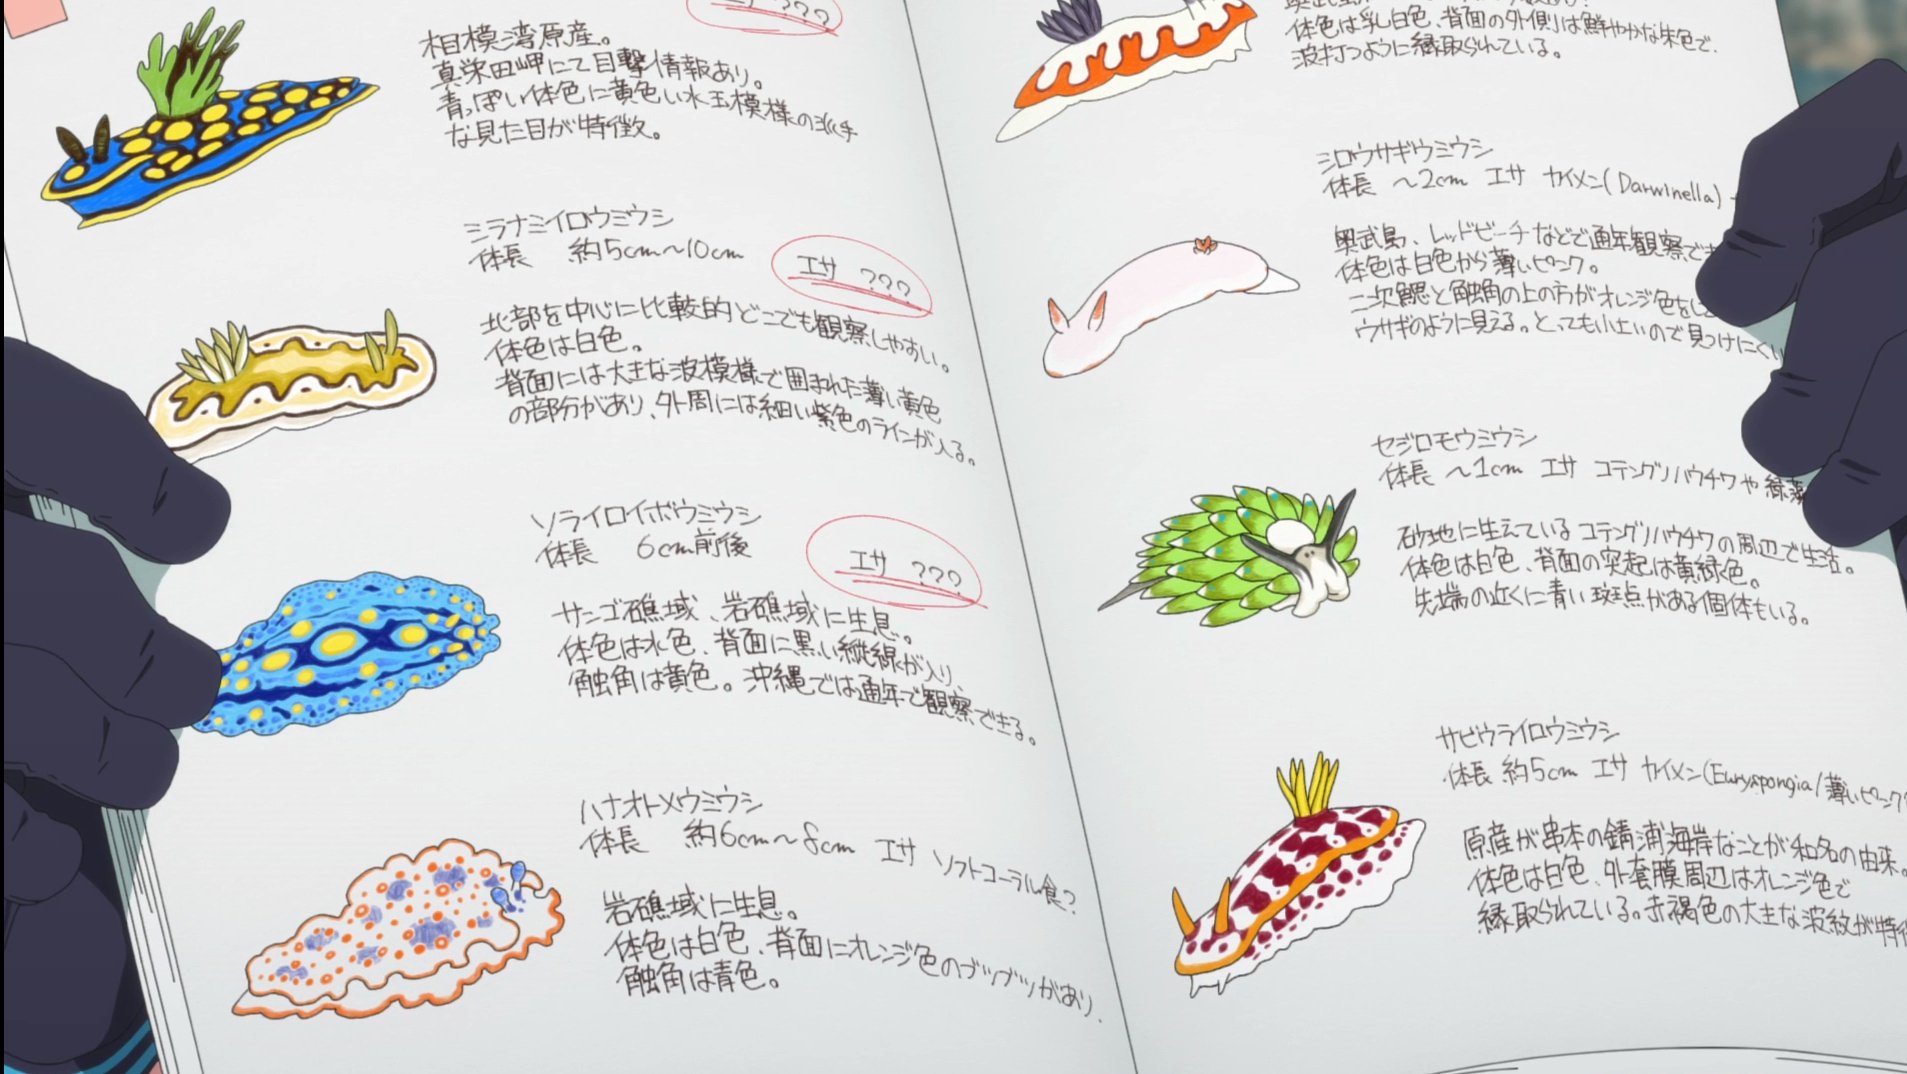 エサ ???
相模湾原産。
真栄田岬にて目撃情報あり。
青っぽい体色に黄色い水玉模様の派手
な見た目が特徴。
ミラナミイロウミウシ
体長 約5cm~10cm
エサ ???
北部を中心に比較的どこでも観察しやすい。
体色は白色。
背面には大きな波模様で囲まれた薄い黄色
の部分があり、外周には細い紫色のラインが入る。
ソライロイボウミウシ
体長 6cm前後
エサ ???
サンゴ礁域、岩礁域に生息。
体色は水色、背面に黒い縦線が入り、
触角は黄色。沖縄では通年で観察できる。
ハナオトメウミウシ
体長 約6cm~8cm エサ ソフトコーラル食?
岩礁域に生息。
体色は白色、背面にオレンジ色のブツブツがあり、
触角は青色。
体色は乳白色、背面の外側は鮮やかな朱色で、
波打つように縁取られている。
シロウサギウミウシ
体長 ~2cm エサ カイメン(Darwinella)
奥武島、レッドビーチなどで通年観察でき
体色は白色から薄いピンク。
二次鰓と触角の上の方がオレンジ色をし
ウサギのように見える。とっても小さいので見つけにくい
セジロモウミウシ
体長 ~1cm エサ コテングノハウチワや緑藻
砂地に生えているコテングノハウチワの周辺で生活。
体色は白色、背面の突起は黄緑色。
先端の近くに青い斑点がある個体もいる。
サビウライロウミウシ
体長 約5cm エサ カイメン(Euryspongia/薄いピンク
原産が串本の錆浦海岸なことが和名の由来。
体色は白色、外套膜周辺はオレンジ色で
縁取られている。赤褐色の大きな波紋が特徴